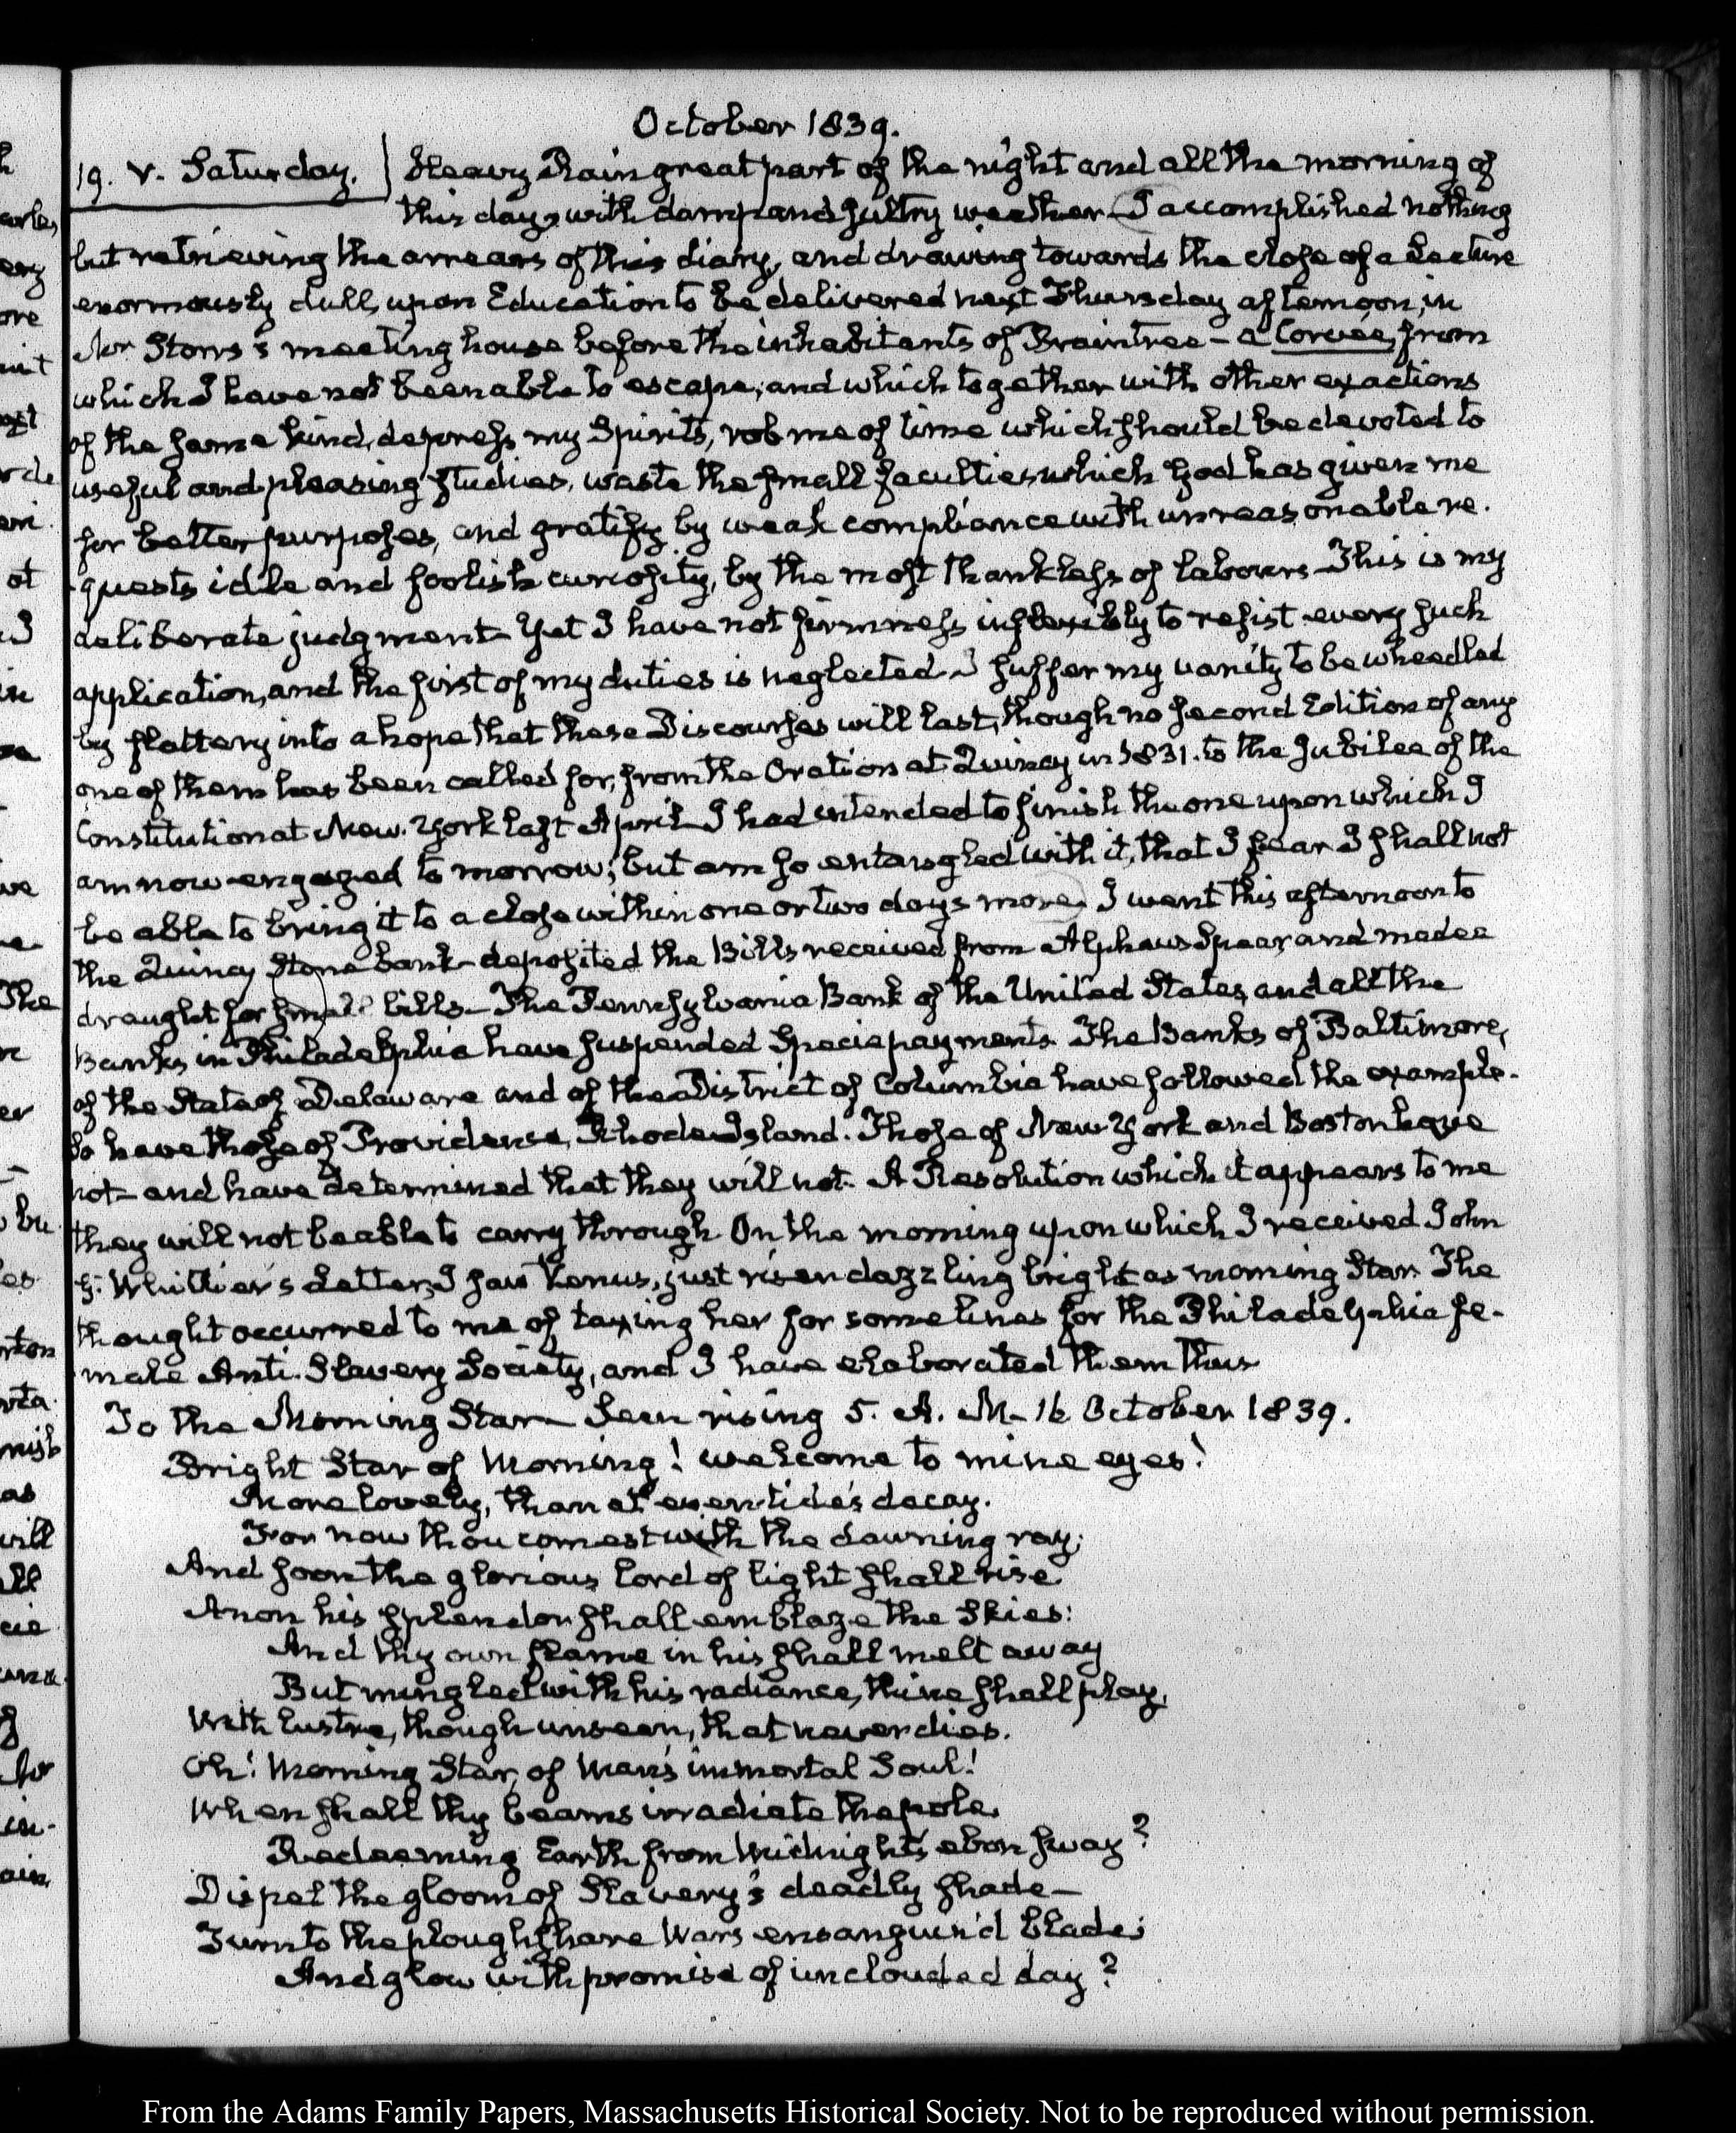 October 1839.
19. V. Saturday. Heavy Rain great part of the night and all the morning of
this day, with damp and sultry weather. I accomplished nothing
but retrieving the arrears of this diary, and drawing towards the close of a Lecture
enormously dull, upon Education to be delivered next Thursday afternoon, in
Mr Storrs's meeting house before the inhabitants of Braintree - a Corvée, from
which I have not been able to escape, and which together with other exactions
of the same kind, depress my Spirits, rob me of time which should be devoted to
useful and pleasing studies, waste the small faculties which God has given me
for better purposes, and gratify by weak compliance with unreasonable re-
quests idle and foolish curiosity, by the most thankless of labours. This is my
deliberate judgment. Yet I have not firmness inflexibly to resist every such
application, and the first of my duties is neglected. I suffer my vanity to be wheedled
by flattery into a hope that these Discourses will last, though no second Edition of any
one of them has been called for, from the Oration at Quincy in 1831. to the Jubilee of the
Constitution at New-York last April. I had intended to finish the one upon which I
am now engaged to morrow; but am so entangled with it, that I fear I shall not
be able to bring it to a close within one or two days more. I went this afternoon to
the Quincy Stone bank - deposited the Bills received from Alpheus Spear, and made a
draught for small bills - The Pennsylvania Bank of the United States, and all the
Banks in Philadelphia have suspended Specie payments. The Banks of Baltimore,
of the State of Delaware and of the District of Columbia have followed the example.
So have those of Providence, Rhode-Island. Those of New York and Boston have
not - and have determined that they will not. A Resolution which it appears to me
they will not be able to carry through. On the morning upon which I received John
G. Whittier's Letter, I saw Venus, just risen dazzling bright as morning Star. The
thought occurred to me of taxing her for some lines for the Philadelphia fe-
male Anti-Slavery Society, and I have elaborated them thus
To the Morning Star - Seen rising 5. A. M. 16 October 1839.
Bright Star of Morning! welcome to mine eyes!
More lovely, than at even-tide's decay.
For now thou comest with the dawning ray;
And soon the glorious lord of light shall rise
Anon his splendor shall emblaze the skies:
And thy own flame in his shall melt away
But mingled with his radiance, thine shall play,
With lustre, though unseen, that never dies.
Oh! Morning Star, of Man's immortal Soul!
When shall thy beams irradiate the pole.
Redeeming Earth from Midnight's ebon sway?
Dispel the gloom of Slavery's deadly shade -
Turn to the ploughshare Wars ensanguin'd blade;
And glow with promise of unclouded day?
From the Adams Family Papers, Massachusetts Historical Society. Not to be reproduced without permission.